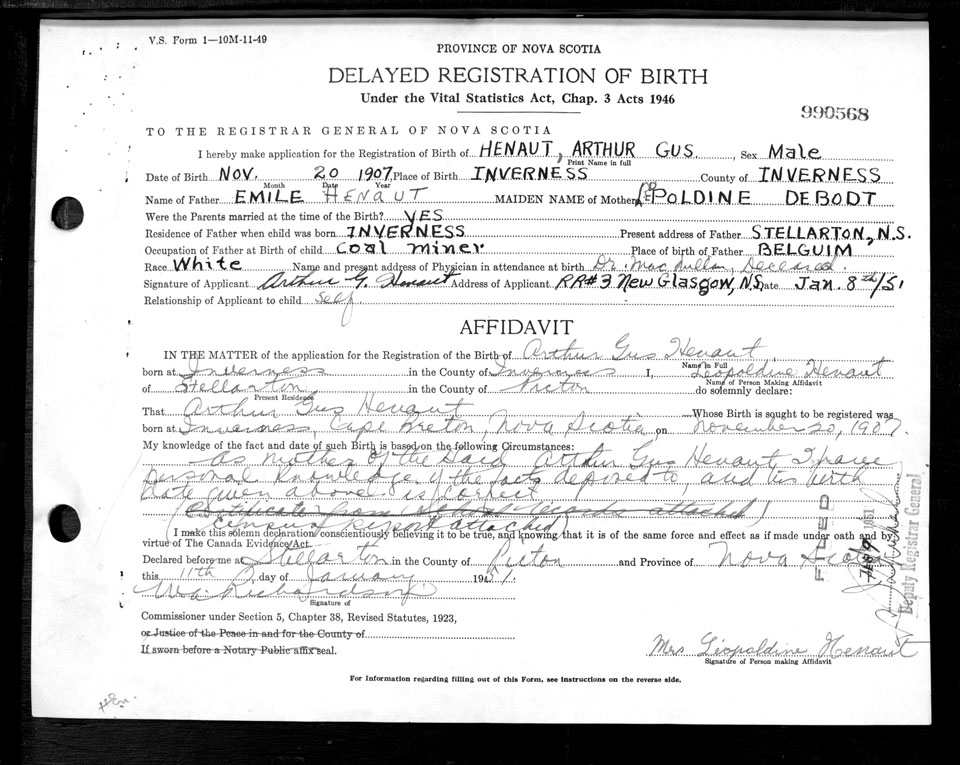 V.S. Form 1—10M-11-49
PROVINCE OF NOVA SCOTIA
DELAYED REGISTRATION OF BIRTH
Under the Vital Statistics Act, Chap. 3 Acts 1946
990568
TO THE REGISTRAR GENERAL OF NOVA SCOTIA
I hereby make application for the Registration of Birth of HENAUT, ARTHUR GUS. Sex Male
Print Name in full
Date of Birth NOV. 20 1907, Place of Birth INVERNESS County of INVERNESS
Month Date Year
Name of Father EMILE HENAUT MAIDEN NAME of Mother LEOPOLDINE DEBODT
Were the Parents married at the time of the Birth? YES
Residence of Father when child was born INVERNESS Present address of Father STELLARTON, N.S.
Occupation of Father at Birth of child Coal miner Place of birth of Father BELGUIM
Race White Name and present address of Physician in attendance at birth Dr. MacMillan, Deceased.
Signature of Applicant Arthur G. Henaut Address of Applicant RR#3 New Glasgow, N.S. Date Jan. 8th/51
Relationship of Applicant to child Self
AFFIDAVIT
IN THE MATTER of the application for the Registration of the Birth of Arthur Gus Henaut
Name in Full
born at Inverness in the County of Inverness I, Leopoldine Henaut
Name of Person Making Affidavit
of Stellarton in the County of Pictou do solemnly declare:
Present Residence
That Arthur Gus Henaut Whose Birth is sought to be registered was
born at Inverness, Cape Breton, Nova Scotia on November 20, 1907.
My knowledge of the fact and date of such Birth is based on the following Circumstances:
As mother of the said Arthur Gus Henaut I have
personal knowledge of the facts deposed to, and his birth
date given above is correct
(Certificate from school records attached)
(Census report attached)
I make this solemn declaration conscientiously believing it to be true, and knowing that it is of the same force and effect as if made under oath and by
virtue of The Canada Evidence Act.
Declared before me at Stellarton in the County of Pictou and Province of Nova Scotia
this 11th day of January 1951.
W.A. Richardson
Signature of
Commissioner under Section 5, Chapter 38, Revised Statutes, 1923,
or Justice of the Peace in and for the County of
If sworn before a Notary Public affix seal.
Mrs Léopoldine Henaut
Signature of Person making Affidavit
For Information regarding filling out of this Form, see instructions on the reverse side.
FILED
1951
Deputy Registrar General